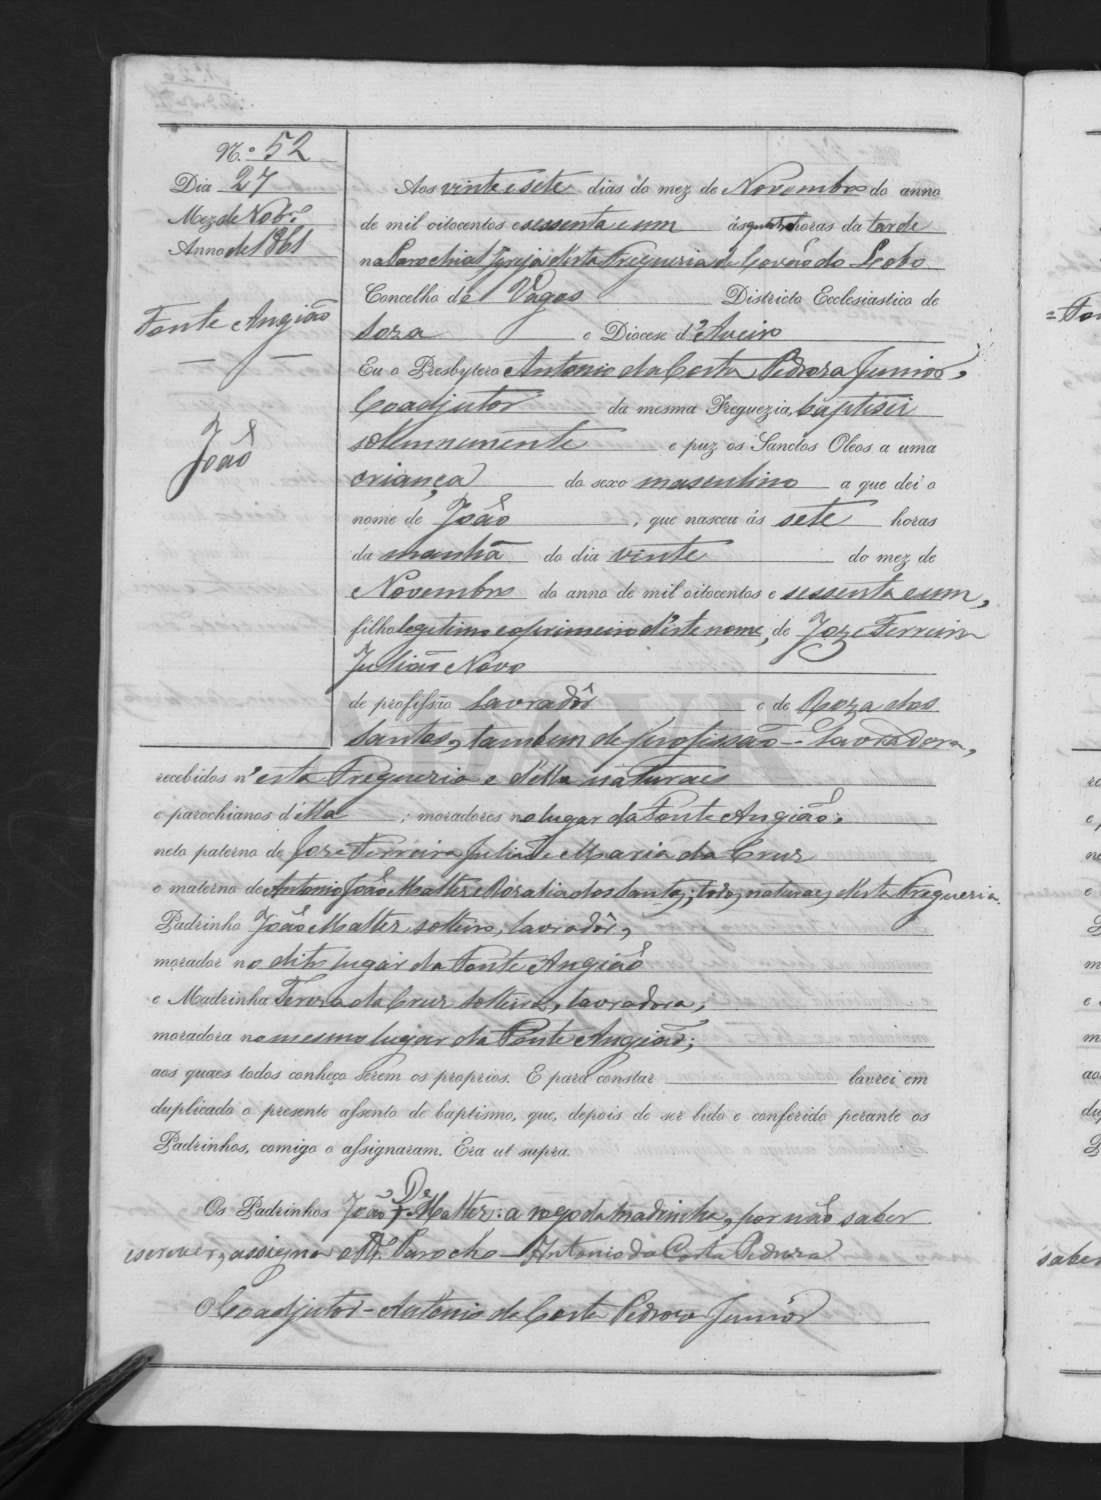 N.º 52
Dia 27
Mez de Nobr.º
Anno de 1861
Fonte Angião
João
Aos vinte e sete dias do mez de Novembro do anno
de mil oitocentos e sessenta e um ás quatro horas da tarde
na Parochial Igreja d'esta Freguezia de Covão do Lobo
Concelho de Vagos Districto Ecclesiastico de
Soza e Diocese d'Aveiro
Eu o Presbytero Antonio da Costa Pedroza Junior,
Coadjutor da mesma Freguezia, baptisei
solemnemente e puz os Sanctos Oleos a uma
criança do sexo masculino a que dei o
nome de João, que nasceu ás sete horas
da manhã do dia vinte do mez de
Novembro do anno de mil oitocentos e sessenta e um,
filho legitimo e o primeiro d'este nome, de Joze Ferreira
Julião Novo
de profissão lavradôr e de Roza dos
Santos, tambem de profissão - lavradora,
recebidos n'esta Freguezia e d'ella naturaes
e parochianos d'ella; moradores no lugar da Fonte Angião;
neto paterno de Joze Ferreira Julião e Maria da Cruz
e materno de Antonio João Malter e Rozalia dos Santos; todos naturaes d'esta Freguezia.
Padrinho João Malter solteiro, lavradôr,
morador no dito lugar da Fonte Angião
e Madrinha Tereza da Cruz solteira, lavradora,
moradora no mesmo lugar da Fonte Angião;
aos quaes todos conheço serem os proprios. E para constar lavrei em
duplicado o presente assento de baptismo, que, depois de ser lido e conferido perante os
Padrinhos, comigo o assignaram. Era ut supra.
Os Padrinhos João De + Malter: a rogo da madrinha, por não saber
escrever, assigno o R. Parocho - Antonio da Costa Pedroza
O Coadjutor - Antonio da Costa Pedroza Junior